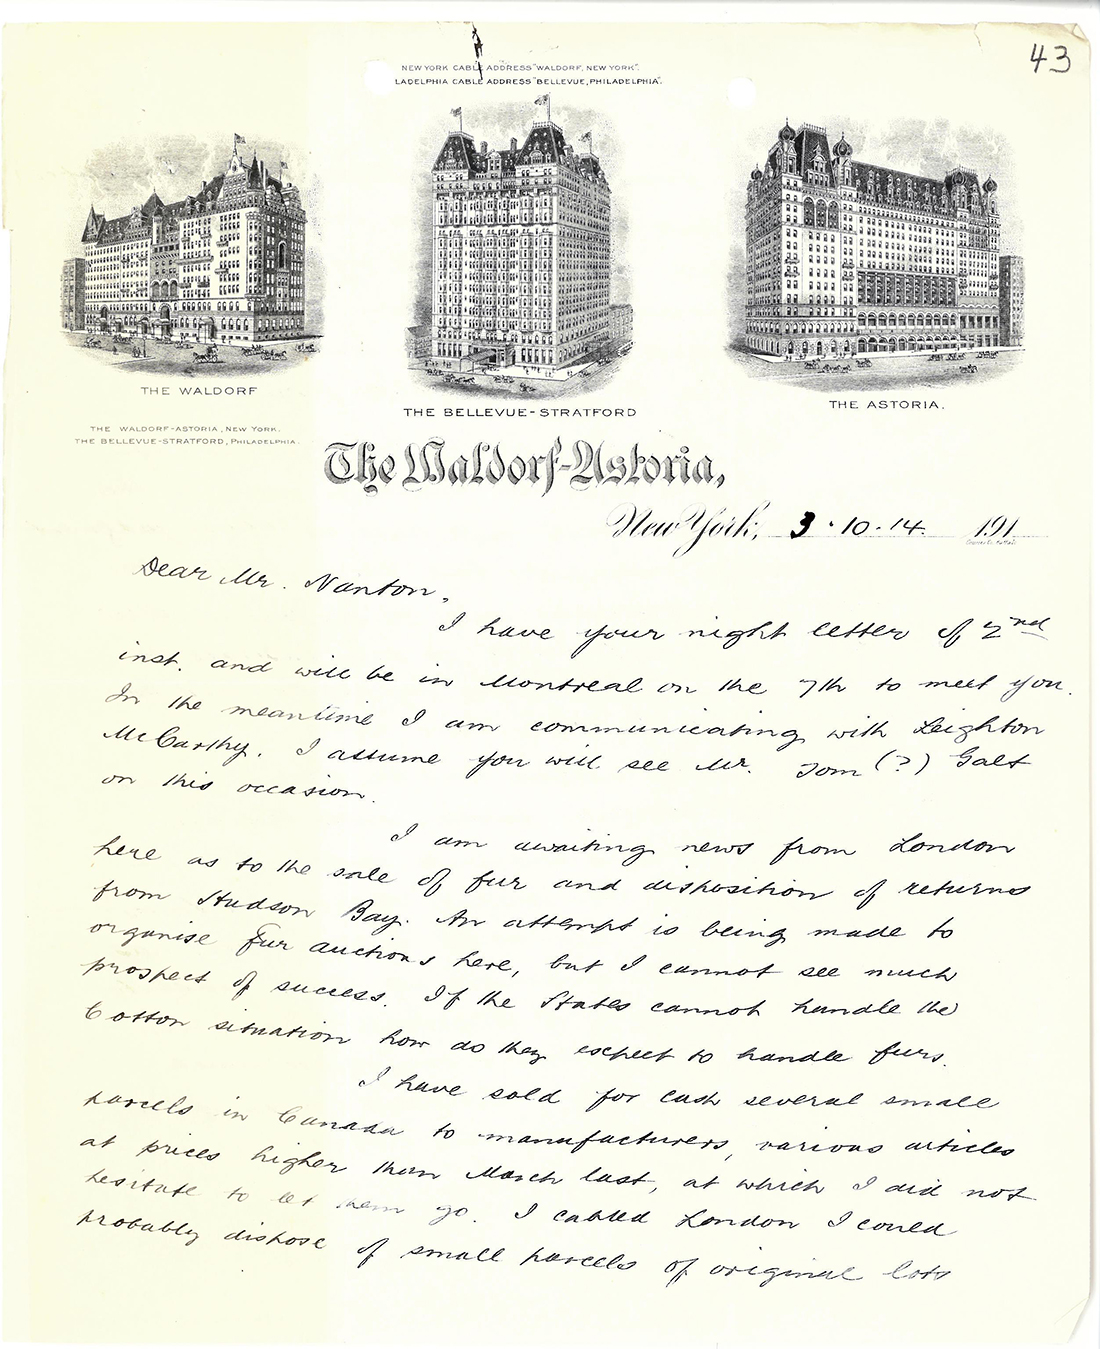 43
NEW YORK CABLE ADDRESS "WALDORF, NEW YORK".
LADELPHIA CABLE ADDRESS "BELLEVUE, PHILADELPHIA".
THE WALDORF
THE BELLEVUE-STRATFORD
THE ASTORIA.
THE WALDORF-ASTORIA, NEW YORK.
THE BELLEVUE-STRATFORD, PHILADELPHIA.
The Waldorf-Astoria,
New York, 3.10.14. 191
Dear Mr. Nanton,
I have your night letter of 2nd
inst. and will be in Montreal on the 7th to meet you.
In the meantime I am communicating with Leighton
McCarthy. I assume you will see Mr. Tom (?) Galt
on this occasion.
I am awaiting news from London
here as to the sale of fur and disposition of returns
from Hudson Bay. An attempt is being made to
organise fur auctions here, but I cannot see much
prospect of success. If the States cannot handle the
Cotton situation how do they expect to handle furs.
I have sold for cash several small
parcels in Canada to manufacturers, various articles
at prices higher than March last, at which I did not
hesitate to let them go. I cabled London I could
probably dispose of small parcels of original lots